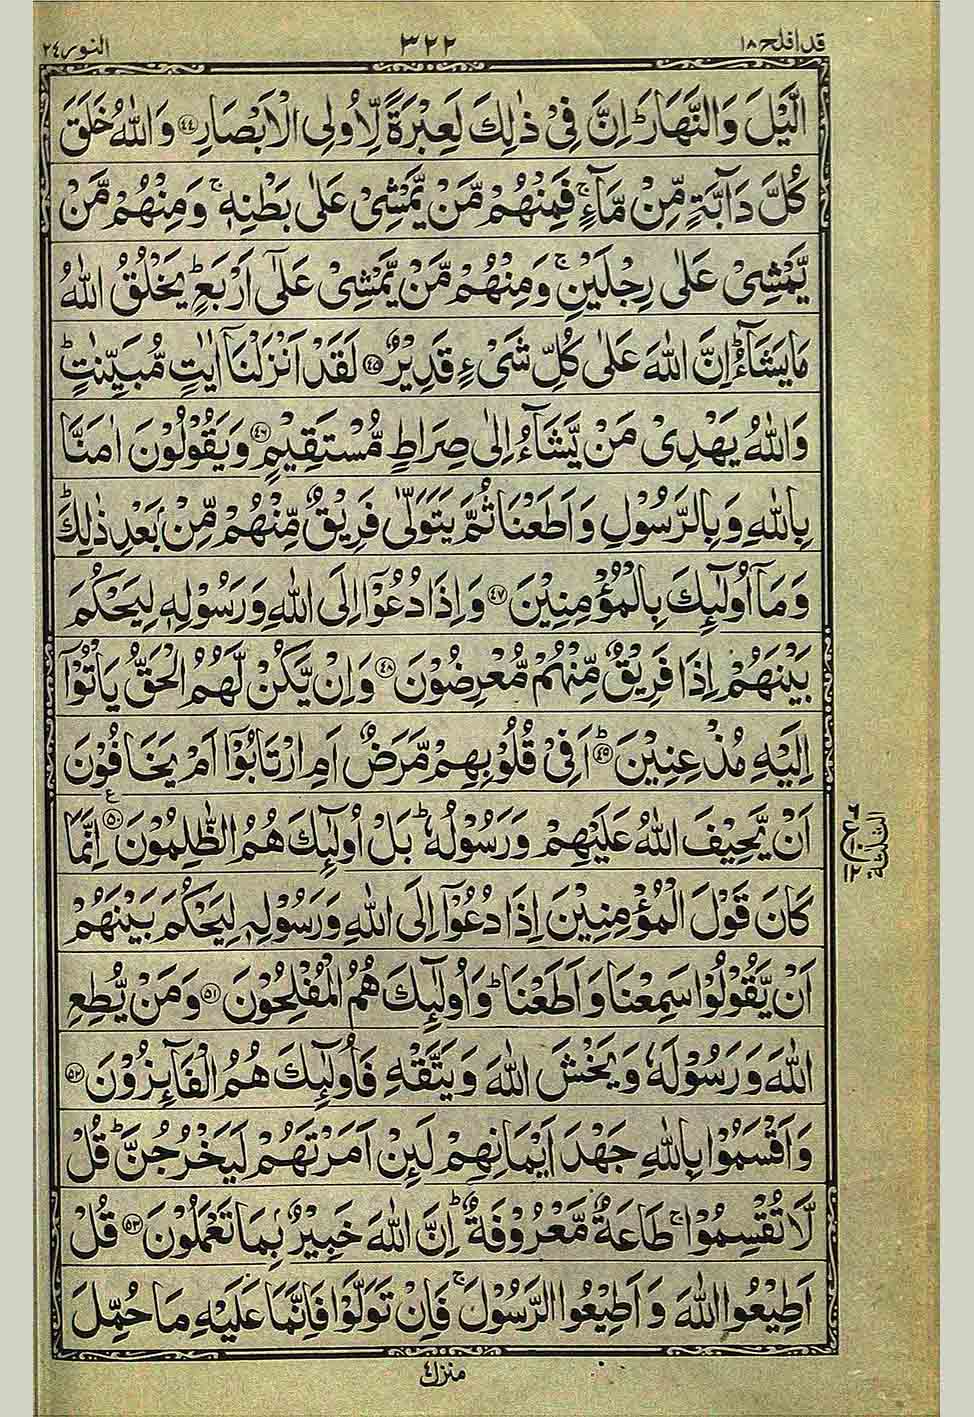 قد افلح ۱۸
۳۲۲
النور ۲٤
الَّيْلَ وَالنَّهَارَ ؕ اِنَّ فِىْ ذٰلِكَ لَعِبْرَةً لِّاُولِى الْاَبْصَارِ ﴿۴۴﴾ وَاللّٰهُ خَلَقَ
كُلَّ دَآبَّةٍ مِّنْ مَّآءٍ ۚ فَمِنْهُمْ مَّنْ يَّمْشِىْ عَلٰى بَطْنِهٖ ۚ وَمِنْهُمْ مَّنْ
يَّمْشِىْ عَلٰى رِجْلَيْنِ ۚ وَمِنْهُمْ مَّنْ يَّمْشِىْ عَلٰٓى اَرْبَعٍ ؕ يَخْلُقُ اللّٰهُ
مَا يَشَآءُ ؕ اِنَّ اللّٰهَ عَلٰى كُلِّ شَىْءٍ قَدِيْرٌ ﴿۴۵﴾ لَقَدْ اَنْزَلْنَاۤ اٰيٰتٍ مُّبَيِّنٰتٍ ؕ
وَاللّٰهُ يَهْدِىْ مَنْ يَّشَآءُ اِلٰى صِرَاطٍ مُّسْتَقِيْمٍ ﴿۴۶﴾ وَيَقُوْلُوْنَ اٰمَنَّا
بِاللّٰهِ وَبِالرَّسُوْلِ وَاَطَعْنَا ثُمَّ يَتَوَلّٰى فَرِيْقٌ مِّنْهُمْ مِّنْۢ بَعْدِ ذٰلِكَ ؕ
وَمَاۤ اُولٰٓئِكَ بِالْمُؤْمِنِيْنَ ﴿۴۷﴾ وَاِذَا دُعُوْۤا اِلَى اللّٰهِ وَرَسُوْلِهٖ لِيَحْكُمَ
بَيْنَهُمْ اِذَا فَرِيْقٌ مِّنْهُمْ مُّعْرِضُوْنَ ﴿۴۸﴾ وَاِنْ يَّكُنْ لَّهُمُ الْحَقُّ يَاْتُوْۤا
اِلَيْهِ مُذْعِنِيْنَ ؕ ﴿۴۹﴾ اَفِىْ قُلُوْبِهِمْ مَّرَضٌ اَمِ ارْتَابُوْۤا اَمْ يَخَافُوْنَ
اَنْ يَّحِيْفَ اللّٰهُ عَلَيْهِمْ وَرَسُوْلُهٗ ؕ بَلْ اُولٰٓئِكَ هُمُ الظّٰلِمُوْنَ ﴿۵۰﴾ ع اِنَّمَا
كَانَ قَوْلَ الْمُؤْمِنِيْنَ اِذَا دُعُوْۤا اِلَى اللّٰهِ وَرَسُوْلِهٖ لِيَحْكُمَ بَيْنَهُمْ
اَنْ يَّقُوْلُوْا سَمِعْنَا وَاَطَعْنَا ؕ وَاُولٰٓئِكَ هُمُ الْمُفْلِحُوْنَ ﴿۵۱﴾ وَمَنْ يُّطِعِ
اللّٰهَ وَرَسُوْلَهٗ وَيَخْشَ اللّٰهَ وَيَتَّقْهِ فَاُولٰٓئِكَ هُمُ الْفَآئِزُوْنَ ﴿۵۲﴾
وَاَقْسَمُوْا بِاللّٰهِ جَهْدَ اَيْمَانِهِمْ لَئِنْ اَمَرْتَهُمْ لَيَخْرُجُنَّ ؕ قُلْ
لَّا تُقْسِمُوْا ۚ طَاعَةٌ مَّعْرُوْفَةٌ ؕ اِنَّ اللّٰهَ خَبِيْرٌۢ بِمَا تَعْمَلُوْنَ ﴿۵۳﴾ قُلْ
اَطِيْعُوا اللّٰهَ وَاَطِيْعُوا الرَّسُوْلَ ۚ فَاِنْ تَوَلَّوْا فَاِنَّمَا عَلَيْهِ مَا حُمِّلَ
منزل ٤